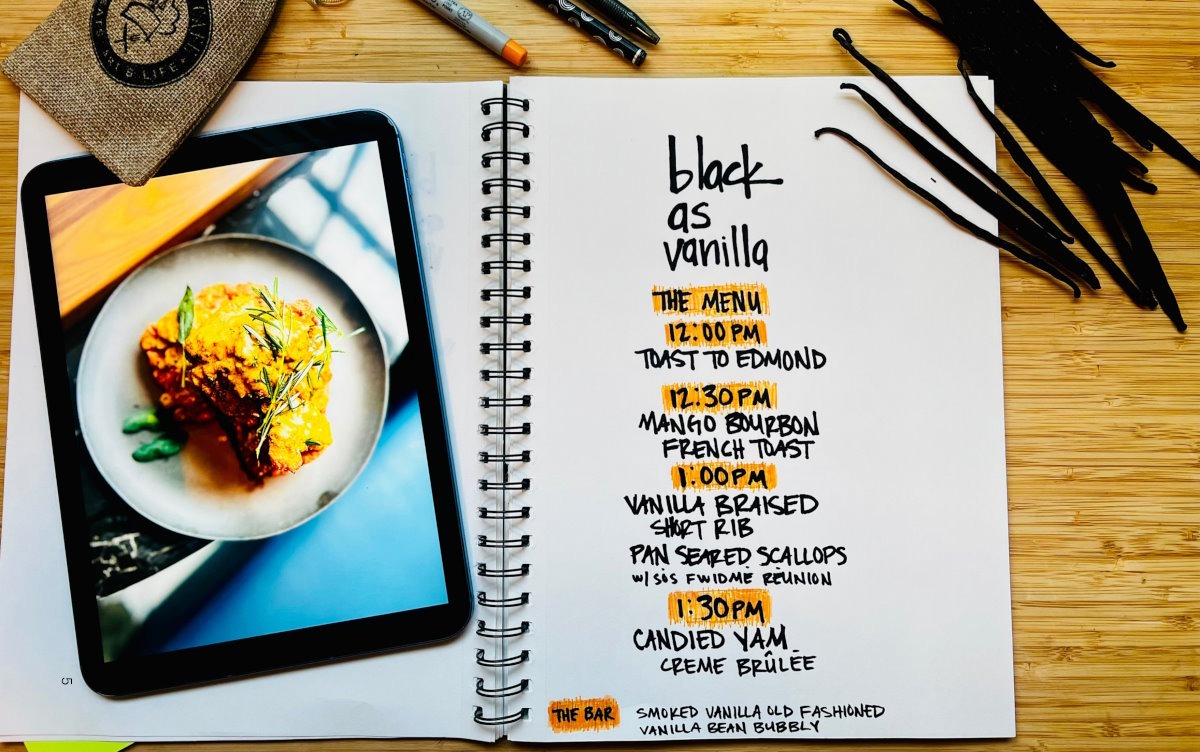 & LIFE
black
as
vanilla
THE MENU
12:00 PM
TOAST TO EDMOND
12:30 PM
MANGO BOURBON
FRENCH TOAST
1:00 PM
VANILLA BRAISED
SHORT RIB
PAN SEARED SCALLOPS
w/ SOS FWIDME REUNION
1:30 PM
CANDIED YAM
CREME BRÛLÉE
THE BAR
SMOKED VANILLA OLD FASHIONED
VANILLA BEAN BUBBLY
5